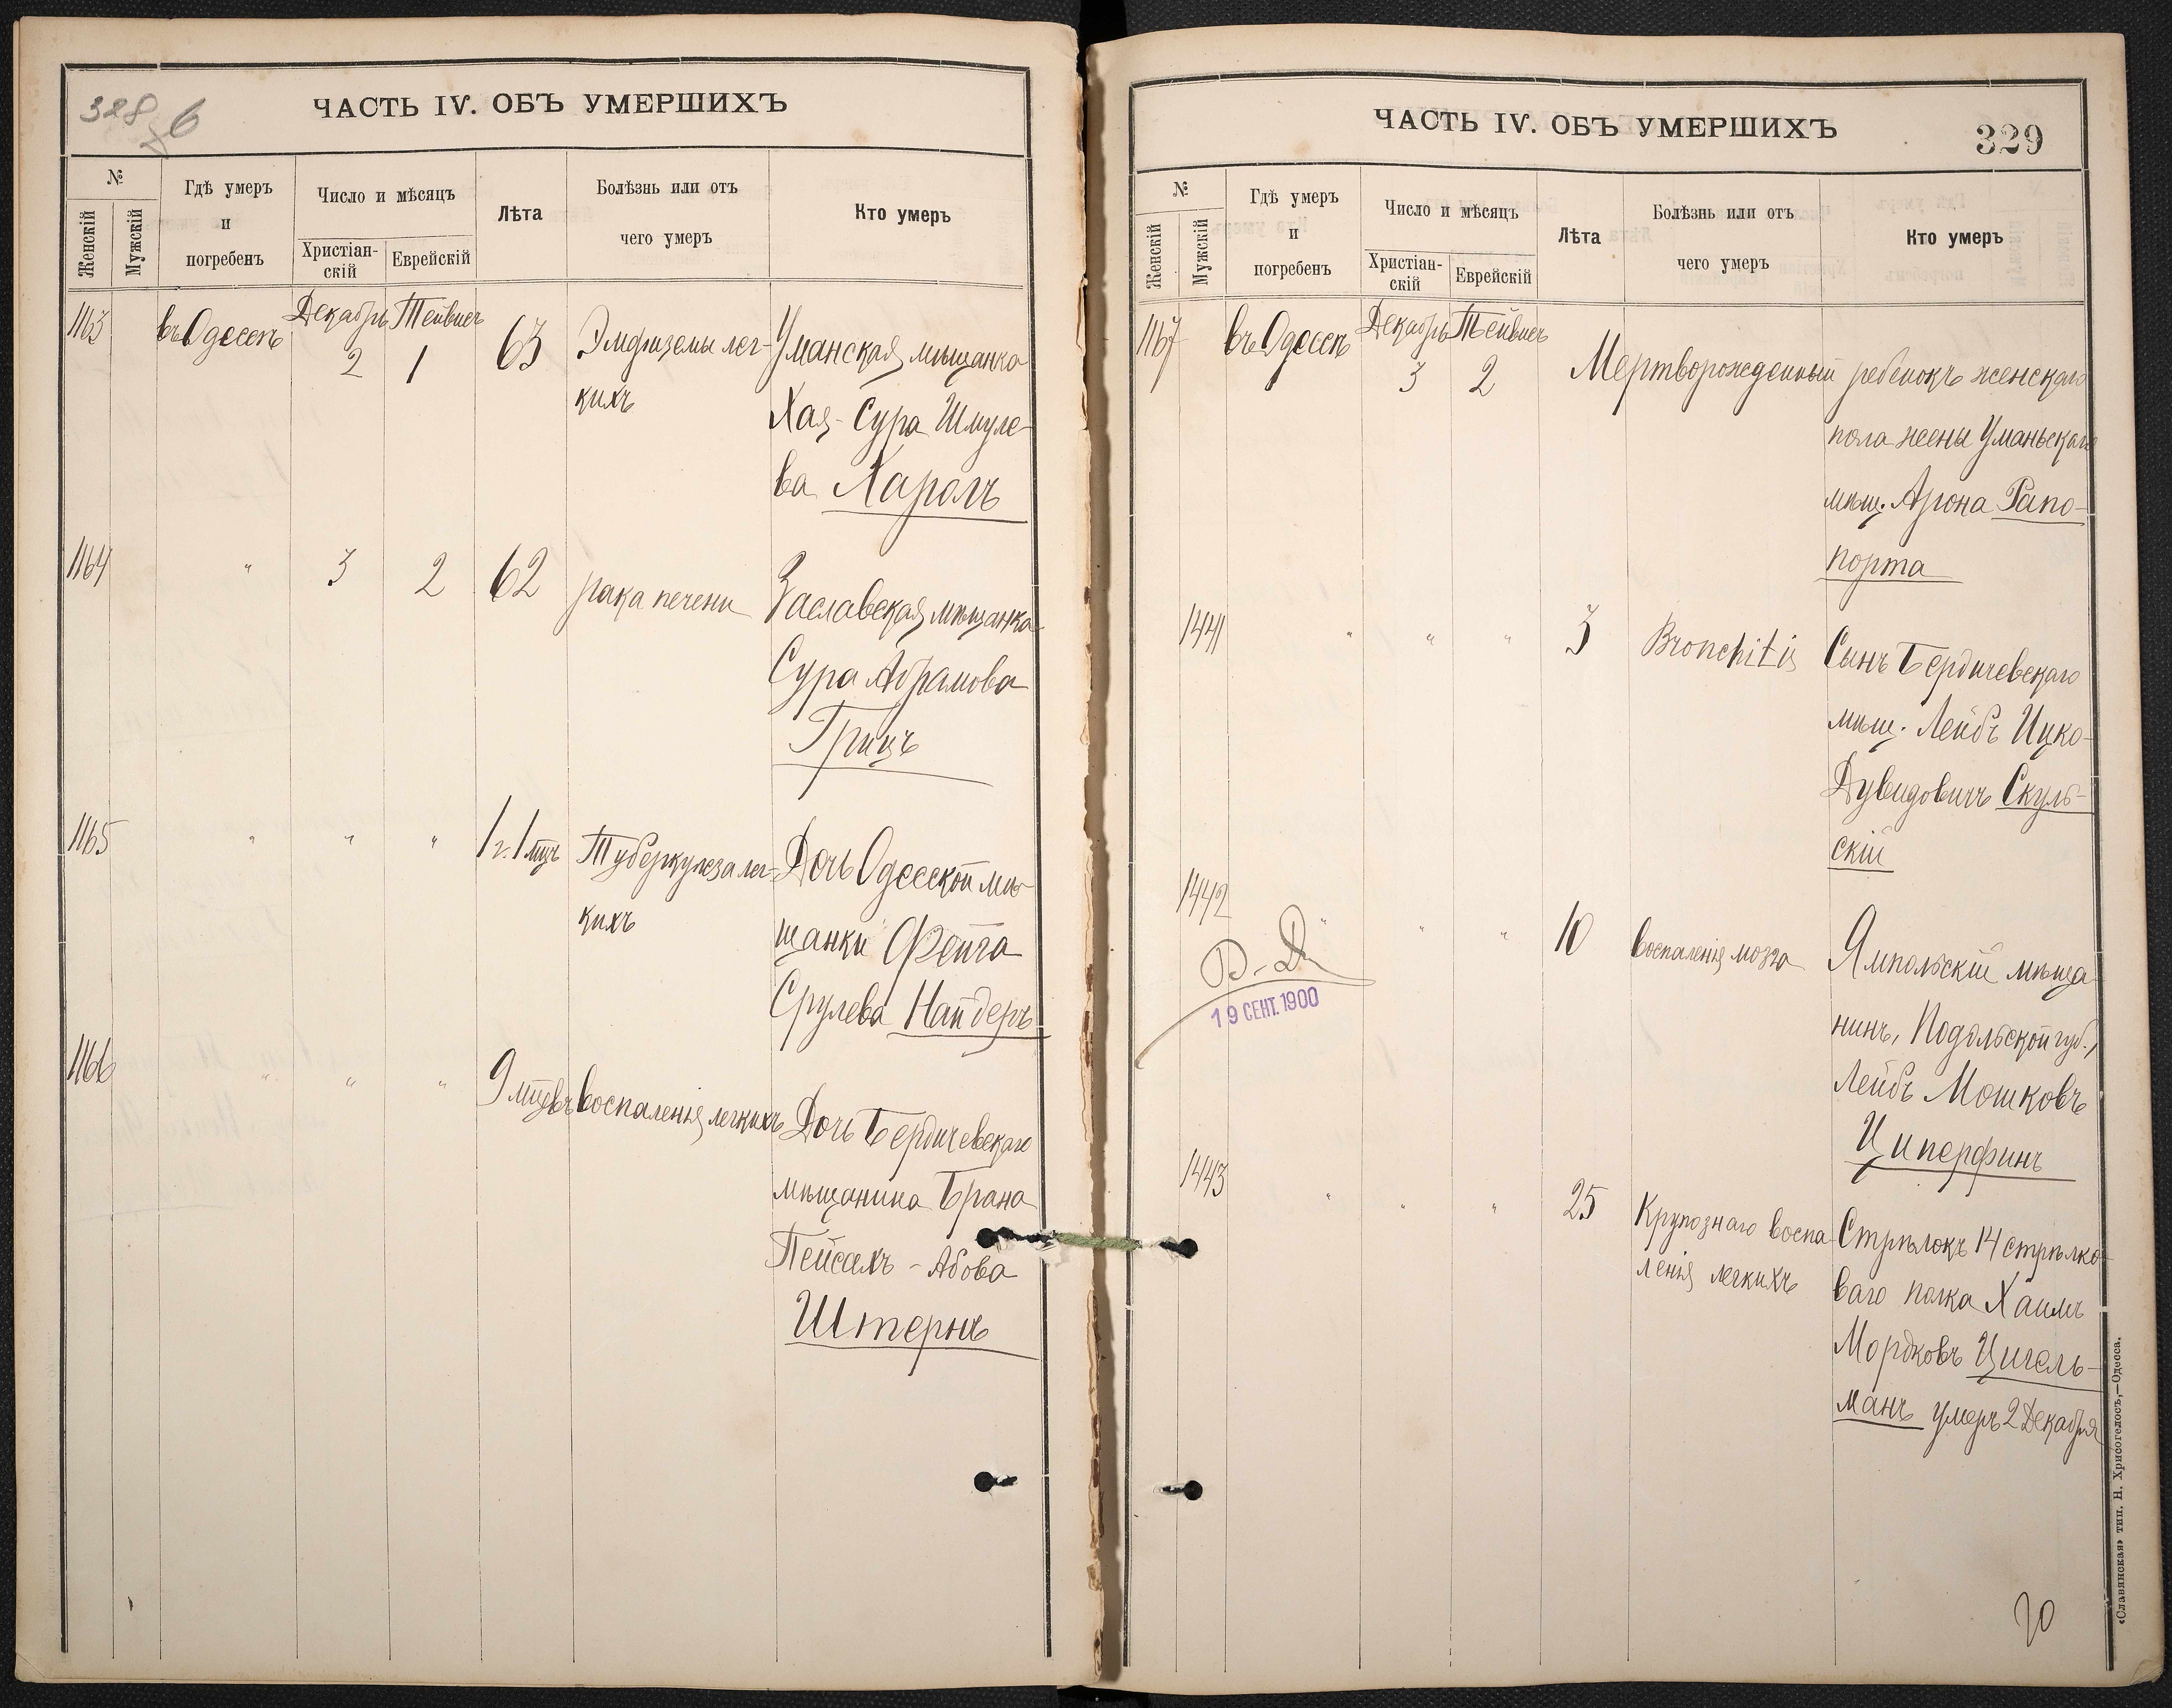 328 об
ЧАСТЬ IV. ОБЪ УМЕРШИХЪ
№
Женскій
Мужскій
Гдѣ умеръ
и
погребенъ
Число и мѣсяцъ
Христіан-
скій
Еврейскій
Лѣта
Болѣзнь или отъ
чего умеръ
Кто умеръ
1163 въ Одессѣ Декабрь 2 Тейвисъ 1 63 Эмфиземы лег-
кихъ
Уманская мѣщанка
Хая-Сура Шмуле-
ва Хароль
1164 " 3 2 62 рака печени Заславская мѣщанка
Сура Абрамова
Грицъ
1165 " " " 1 г. 1 мцъ Туберкулеза лег-
кихъ
Дочь Одесской мѣ-
щанки Фейга
Срулева Найдеръ
1166 " " " 9 мцевъ воспаленія легкихъ Дочь Бердичевскаго
мѣщанина Брана
Пейсахъ-Абова
Штернъ
ЧАСТЬ IV. ОБЪ УМЕРШИХЪ
329
№
Женскій
Мужскій
Гдѣ умеръ
и
погребенъ
Число и мѣсяцъ
Христіан-
скій
Еврейскій
Лѣта
Болѣзнь или отъ
чего умеръ
Кто умеръ
1167 въ Одессѣ Декабрь 3 Тейвисъ 2 Мертворожденный ребенокъ женскаго
пола жены Уманьскаго
мѣщ. Арона Рапо-
порта
1441 " " " 3 Bronchitis Сынъ Бердичевскаго
мѣщ. Лейбъ Ицко-
Дувидовичъ Скуль-
скій
1442 " " " 10 воспаленія мозга Ямпольскій мѣща
нинъ, Подольской губ.,
Лейбъ Мошковъ
Циперфинъ
19 СЕНТ. 1900
1443 " " " 25 Крупознаго воспа-
ленія легкихъ
Стрѣлокъ 14 стрѣлко-
ваго полка Хаимъ
Мордковъ Цигель-
манъ умеръ 2 Декабря
«Славянская» тип. Н. Хрисогелосъ,—Одесса.